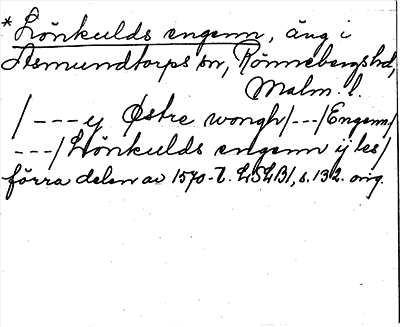 *Lönkulds engenn, äng i
Asmundtorps sn, Rönnebergshd,
Malm. l.
/---y Østre wongh/---/Engenn/
---/Lönkulds engenn ij les/
förra delen av 1570-t. LSLB1, s. 132. orig.